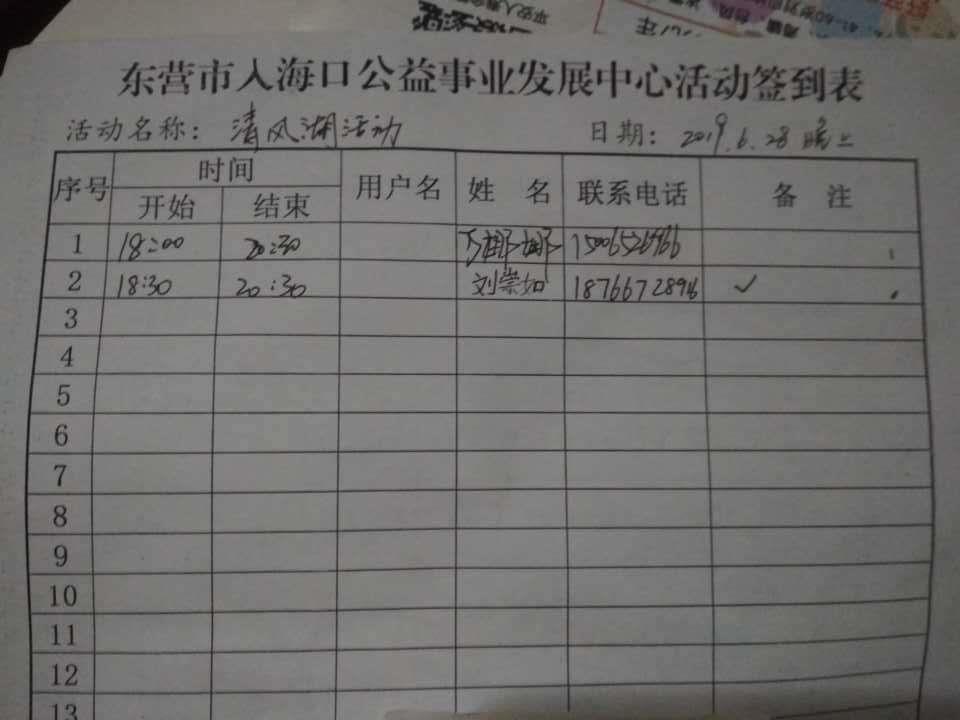 东营市入海口公益事业发展中心活动签到表
活动名称：清风湖活动 日期：2019.6.28晚上
序号 时间 用户名 姓名 联系电话 备注
开始 结束
1 18:00 20:30 15006526966
2 18:30 20:30 刘崇如 18766728996 ✓
3
4
5
6
7
8
9
10
11
12
13